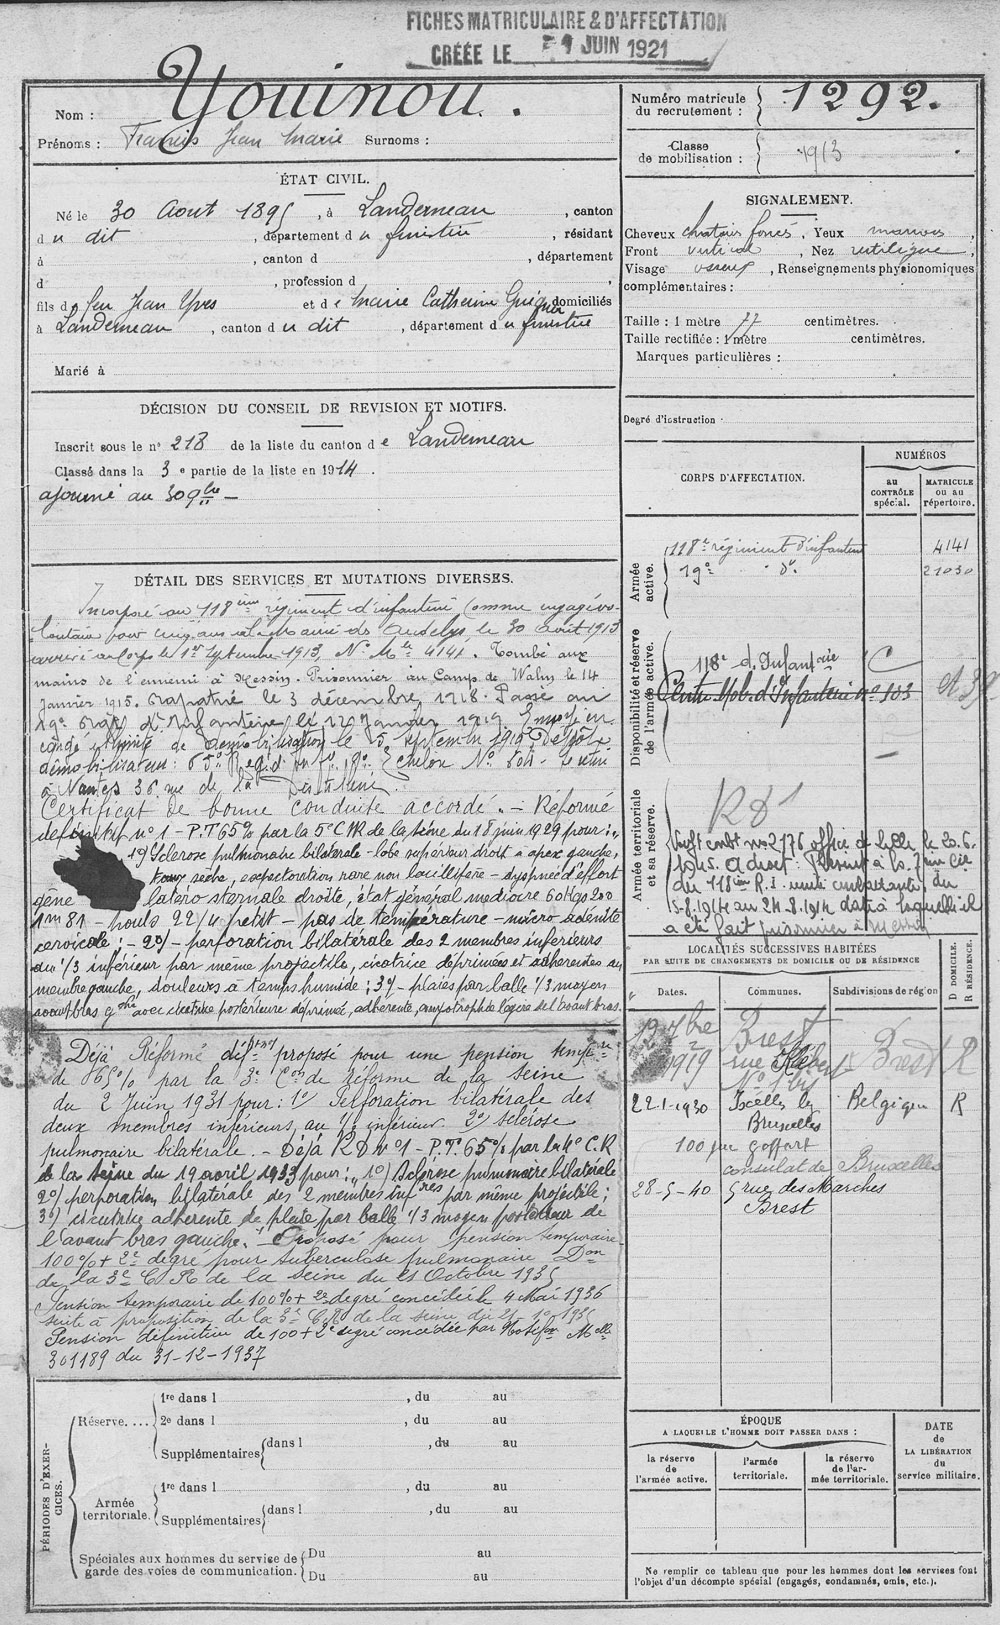 FICHES MATRICULAIRE & D'AFFECTATION
CRÉÉE LE 1 JUIN 1921
Nom : Youinou.
Prénoms : Francis Jean Marie Surnoms :
Numéro matricule du recrutement : 1292.
Classe de mobilisation : 1913
ÉTAT CIVIL.
Né le 30 Aout 1895, à Landerneau, canton
du dit, département du finistère, résidant
à , canton d , département
d , profession d
fils de feu Jean Yves et de Marie Catherine domiciliés
à Landerneau, canton du dit, département du finistère
Marié à
SIGNALEMENT.
Cheveux chatain foncés, Yeux marrons,
Front vertical, Nez rectiligne,
Visage osseux, Renseignements physionomiques
complémentaires :
Taille : 1 mètre 77 centimètres.
Taille rectifiée : 1 mètre centimètres.
Marques particulières :
Degré d'instruction :
DÉCISION DU CONSEIL DE REVISION ET MOTIFS.
Inscrit sous le n° 218 de la liste du canton de Landerneau
Classé dans la 3e partie de la liste en 1914.
ajourné au 30 9bre
DÉTAIL DES SERVICES ET MUTATIONS DIVERSES.
Incorporé au 118ème régiment d'infanterie comme engagé vo-
lontaire pour cinq ans à la Mairie des Andelys le 30 août 1913
arrivé au Corps le 1er septembre 1913, N° Mle 4141. Tombé aux
mains de l'ennemi à Messin. Prisonnier au Camp de Wahn le 14
janvier 1915. Rapatrié le 3 décembre 1918. Passé au
19e Rég d'Infanterie le 12 Janvier 1919. Envoyé en
congé illimité de démobilisation le 5 septembre 1919 Dépôt
démobilisateur : 65e Reg. d'inf. 18e Echelon N° 604. Se retire
à Nantes 36 rue de la
Certificat de bonne conduite accordé. - Réformé
définitif n° 1 - P.T 65% par la 5e C.R de la Seine du 18 juin 1929 pour : "
1°) Sclérose pulmonaire bilatérale - lobe supérieur droit & apex gauche,
toux sèche, expectoration rare non bacillifère - dyspnée d'effort
gêne latéro sternale droite, état général médiocre 60 kgs 200
1m 81 - pouls 22/4 petit - pas de température - micro adénite
cervicale ; - 2°/ - perforation bilatérale des 2 membres inférieurs
au 1/3 inférieur par même projectile, cicatrice déprimées et adhérentes au
membre gauche, douleurs à temps humide ; 3°/ - plaies par balle 1/3 moyen
avant bras gche avec cicatrice postérieure déprimée, adhérente, amyotrophie légère de l'avant bras.
Déjà Réformé déftnt n° 1 proposé pour une pension tempre
de 65% par la 3e Con de réforme de la Seine
du 2 Juin 1931 pour : 1° Perforation bilatérale des
deux membres inférieurs au 1/3 inférieur 2°) sclérose
pulmonaire bilatérale. - Déjà R D n° 1 - P.T. 65% par la 4e C.R
de la Seine du 19 avril 1933 pour : " 1°) Sclérose pulmonaire bilatérale
2°) perforation bilatérale des 2 membres infres par même projectile ;
3°) cicatrice adhérente de plaie par balle 1/3 moyen postérieur de
l'avant bras gauche. " Proposé pour pension temporaire
100% + 2e degré pour tuberculose pulmonaire Don
de la 3e C. R. de la Seine du 21 Octobre 1935
Pension temporaire de 100% + 2e degré concédée le 4 Mai 1936
suite à proposition de la 3e C.R. de la Seine du 21 10 1935
Pension définitive de 100 + 2e degré concédée par Notifon Mlle
301189 du 31-12-1937
CORPS D'AFFECTATION.
NUMÉROS
au CONTRÔLE spécial.
MATRICULE ou au répertoire.
Armée active.
118e régiment d'infanterie 4141
19e d° 21030
Disponibilité et réserve de l'armée active.
118e d'Infanterie C
Centre Mob. d'Infanterie n° 183
Armée territoriale et sa réserve.
RD1
no 2776 office de Lille le 20.6.
1945.
du 118ème R.I. unité combattante du
5-8-1914 au 24-8-1914 date à laquelle il
a été fait prisonnier à Messin
LOCALITÉS SUCCESSIVES HABITÉES
PAR SUITE DE CHANGEMENTS DE DOMICILE OU DE RÉSIDENCE
D DOMICILE. R RÉSIDENCE.
Dates. Communes. Subdivisions de région
12 7bre 1919 Brest rue Kléber Brest R
22-1-1930 Ixelles les Bruxelles Belgique R
100 rue Goffart
consulat de Bruxelles
28-5-40 5 rue des Marches
Brest
PÉRIODES D'EXERCICES.
Réserve.... 1re dans l , du au
2e dans l , du au
Supplémentaires dans l , du au
Armée territoriale. 1re dans l , du au
Supplémentaires dans l , du au
Spéciales aux hommes du service de garde des voies de communication. Du au
Du au
ÉPOQUE
A LAQUELLE L'HOMME DOIT PASSER DANS :
la réserve de l'armée active.
l'armée territoriale.
la réserve de l'armée territoriale.
DATE de LA LIBÉRATION du service militaire.
Ne remplir ce tableau que pour les hommes dont les services font
l'objet d'un décompte spécial (engagés, condamnés, omis, etc.).